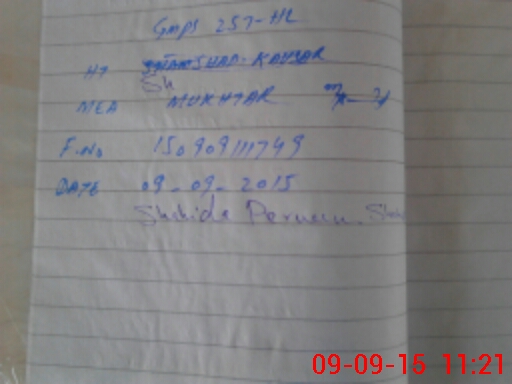 GMPS 257-HL
HT SHAMSHAD-KAUSAR
Sh
MEA MUKHTAR
F.No 150909111749
DATE 09-09-2015
Shahida Perveen.
09-09-15 11:21